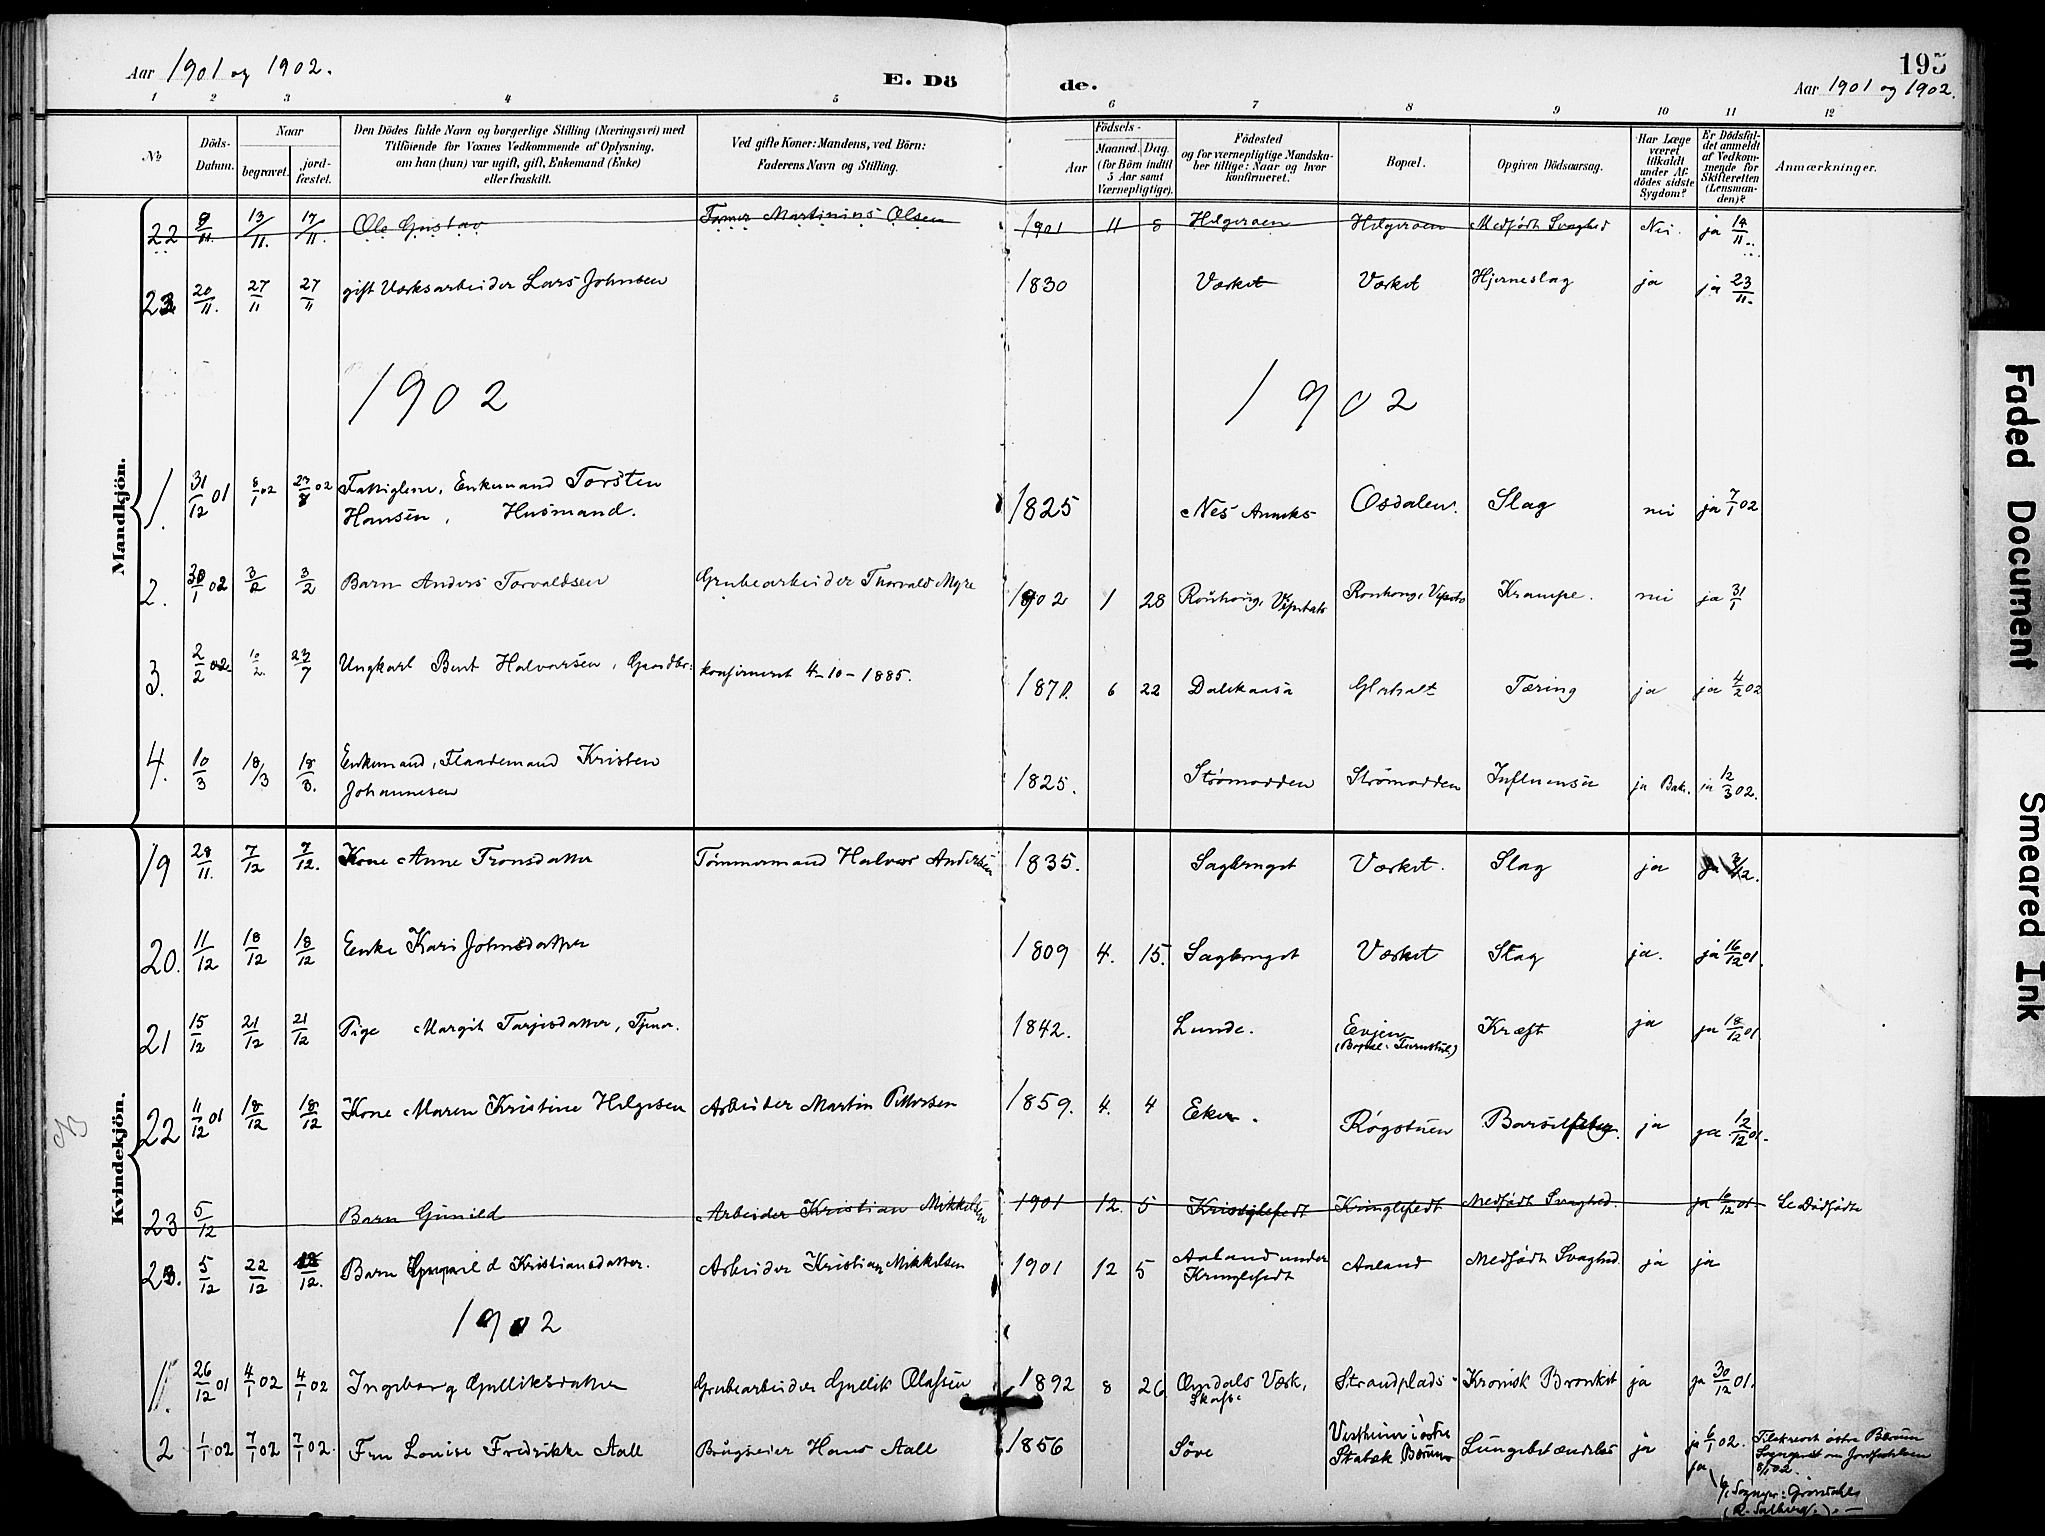 Aar 1901 og 1902.
E. Dö
de.
195
Aar 1901 og 1902.
1 2 3 4 5 6 7 8 9 10 11 12
No
Döds-Datum.
Naar
begravet.
jord-fæstet.
Den Dödes fulde Navn og borgerlige Stilling (Næringsvei) med
Tilföiende for Voxnes Vedkommende af Oplysning,
om han (hun) var ugift, gift, Enkemand (Enke)
eller fraskilt.
Ved gifte Koner: Mandens, ved Börn:
Faderens Navn og Stilling.
Födsels-
Aar
Maaned. Dag.
(for Börn indtil
5 Aar samt
Værnepligtige).
Födested
og for værnepligtige Mandska-
ber tillige: Naar og hvor
konfirmeret.
Bopæl.
Opgiven Dödsaarsag.
Har Læge
været
tilkaldt
under Af-
dödes sidste
Sygdom?
Er Dödsfal-
det anmeldt
af Vedkom-
mende for
Skifteretten
(Lensman-
den)?
Anmærkninger.
Mandkjön.
22 9/11. 13/11. 17/11. Ole Gustav Martinius Olsen 1901 11 8 Helgeraen Helgeraen Medfødt Svaghed Nei. ja 14/11.
23 20/11. 27/11 27/11 gift Værksarbeider Lars Johnsen 1830 Værket Værket Hjerneslag ja ja 23/11.
1902
1902
1. 31/12 01 8/1 02 23/8 02 Fattiglem, Enkemand Torsten
Hansen, Husmand. 1825 Nes Anneks Osdalen. Slag nei ja 7/1 02
2. 30/1 02 3/2 3/2 Barn Anders Torvaldsen Grubearbeider Thorvald Myre 1902 1 28 Krampe. nei ja 31/1
3. 2/2 02 10/2. 23/7 Ungkarl Bent Halvorsen, Gaardbr: konfirmeret 4-10-1885. 1870. 6 22 Dalekaasa Tæring ja ja 4/2 02
4. 10/3 18/3 18/3. Enkemand, Kristen
Johannesen 1825. Strømodden Strømodden Influensa ja ja 12/3 02.
Kvindekjön.
19 28/11. 7/12 7/12. Kone Anne Tronsdatter Tømmermand Halvor Andersen 1835. Sagbruget Værket. Slag ja 3/12.
20. 11/12 18/12 18/12 Enke Kari Johnsdatter 1809 4. 15. Sagbruget Værket Slag ja. ja 16/12 01.
21 15/12 21/12 21/12 Pige Margit Tarjeisdatter, Tjener. 1842. Lunde. Evjen Kræft ja ja 18/12 01
22 11/12 01 18/12 18/12 Kone Maren Kristine Helgesen Arbeider Martin Pettersen 1859. 4. 4 Eker. Røgstuen Barselfeber. ja ja 12/12 01.
23 5/12 Barn Gunild Arbeider Kristian Mikkelsen 1901 12. 5 Kringlefedt Kringlefedt Medfødt Svaghed. ja 6/12 01 Se Dødfødte
23. 5/12 22/12 /12. Barn Gunild Kristiansdatter. Arbeider Kristian Mikkelsen 1901 12 5 Aaland under
Kringlefedt Aaland Medfødt Svaghed. ja ja
1902
1. 26/12 01 4/1 02 4/1 02 Ingeborg Gulliksdatter Grubearbeider Gullik Olafsen 1892 8 26 Omdals Værk,
Skafs: Strandplads Kronisk Bronkit ja ja 30/12 01.
2 1/1 02 7/1 02 7/1 02. Fru Louise Fredrikke Aall Brugseier Hans Aall 1856 Søve Vestheim i østre
Stabæk Bærum Lungebetændelse ja ja 6/1 02.
ja
Faded Document
Smeared Ink